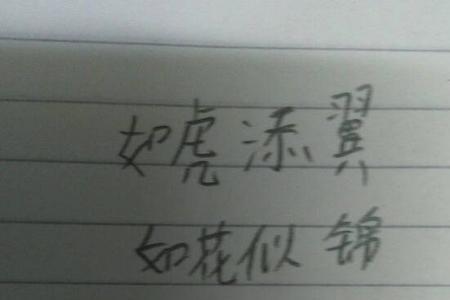 如虎添翼
如花似锦